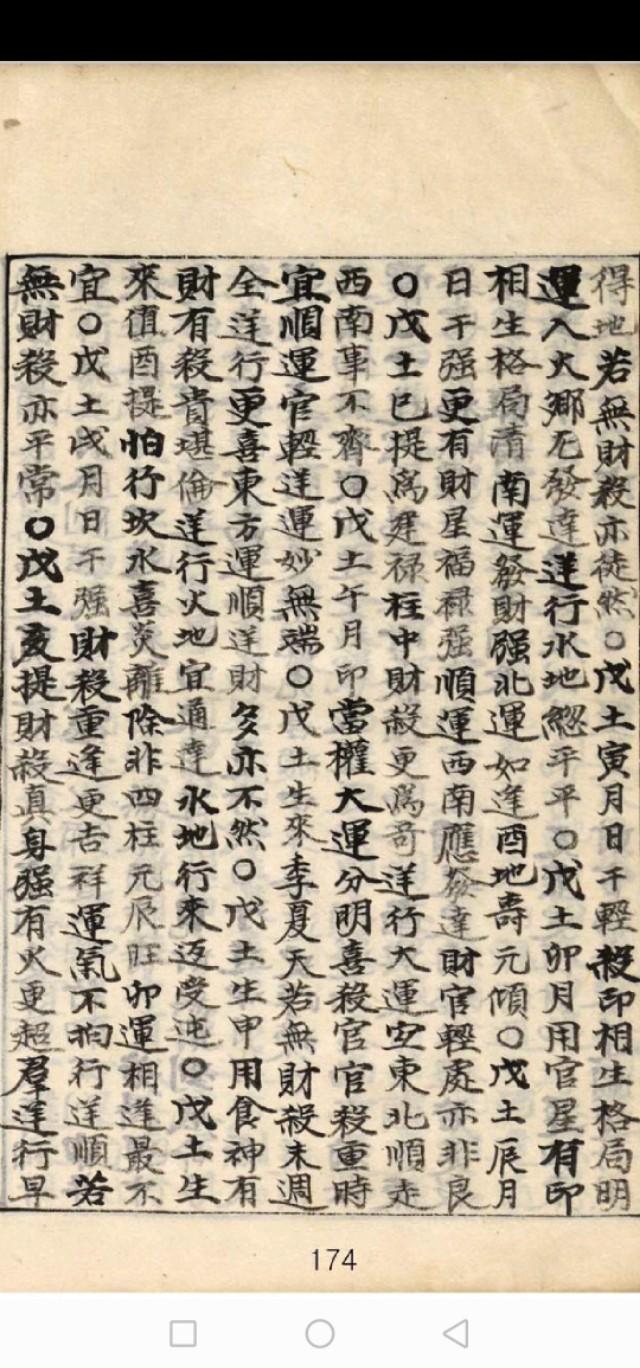 得地若無財殺亦徒然○戊土寅月日干輕殺印相生格局明
運入火鄉尤發達逆行水地總平平○戊土卯月用官星有印
相生格局清南運發財强北運如逢酉地壽元傾○戊土辰月
日干强更有財星福祿强順運西南應發達財官輕處亦非良
○戊土巳提爲建禄柱中財殺更爲奇逆行大運宜東北順走
西南事不齊○戊土午月印當權大運分明喜殺官官殺重時
宜順運官輕逆運妙無端○戊土生來季夏天若無財殺未週
全逆行更喜東方運順逆財多亦不然○戊土生申用食神有
財有殺貴堪倫逆行火地宜通達水地行來迍受迍○戊土生
來值酉提怕行坎水喜炎離除非四柱元辰旺卯運相逢最不
宜○戊土戌月日干强財殺重逢更吉祥運氣不拘行逆順若
無財殺亦平常○戊土亥提財殺真身强有火更超羣逆行早
174